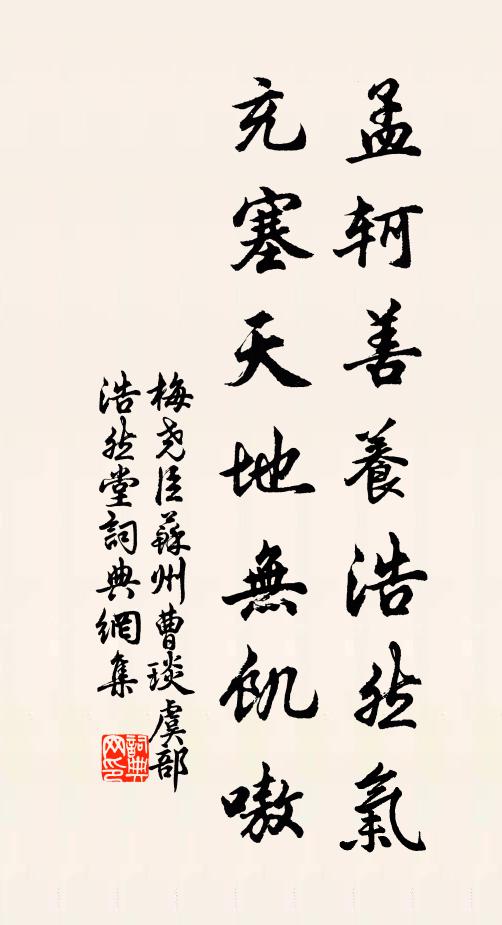 孟軻善養浩然氣
充塞天地無飢嗷
梅堯臣蘇州曹琰虞部
浩然堂詞典網集
詞典網印